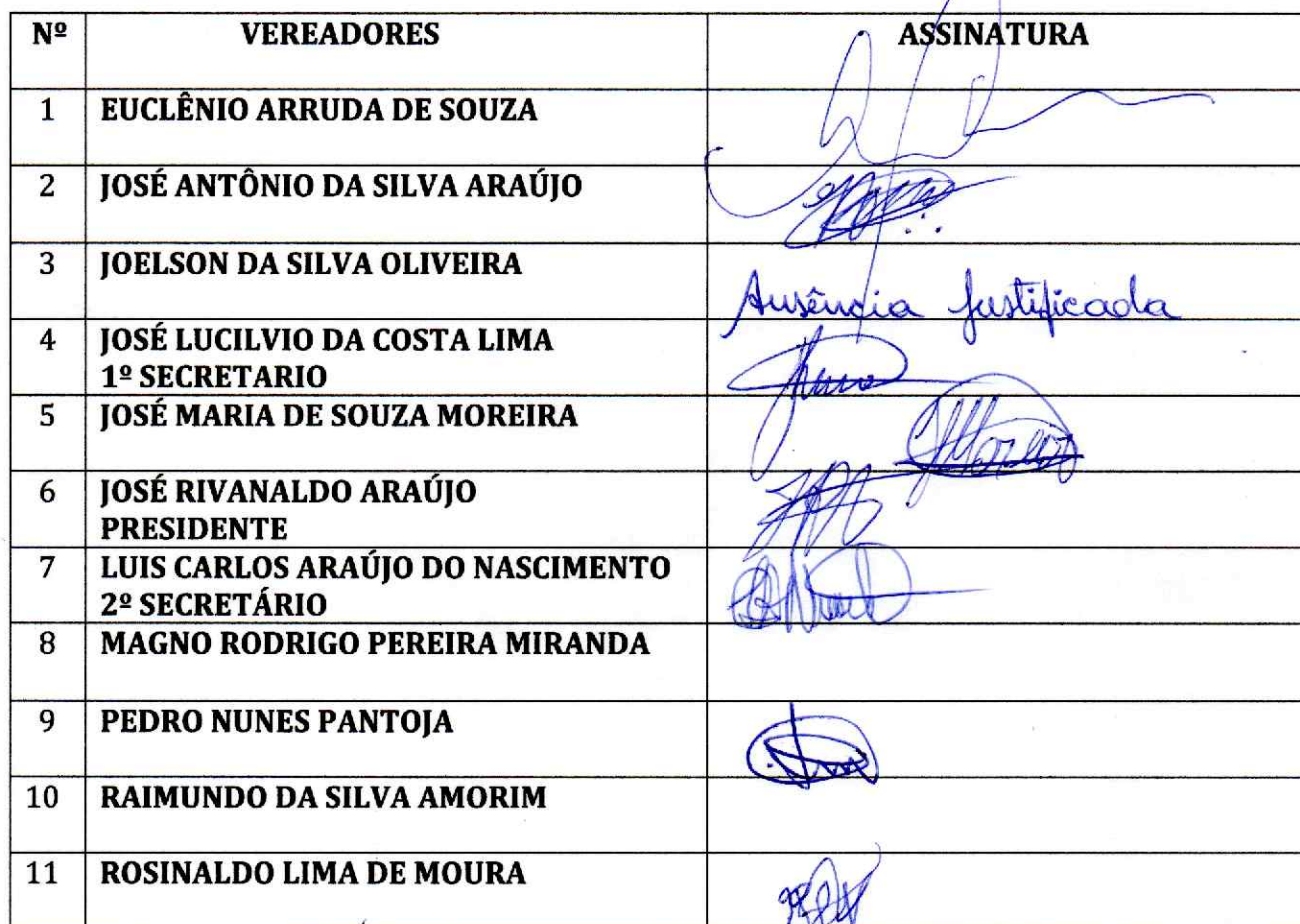 Nº VEREADORES ASSINATURA
1 EUCLÊNIO ARRUDA DE SOUZA
2 JOSÉ ANTÔNIO DA SILVA ARAÚJO
3 JOELSON DA SILVA OLIVEIRA Ausência Justificada
4 JOSÉ LUCILVIO DA COSTA LIMA
1º SECRETARIO
5 JOSÉ MARIA DE SOUZA MOREIRA
6 JOSÉ RIVANALDO ARAÚJO
PRESIDENTE
7 LUIS CARLOS ARAÚJO DO NASCIMENTO
2º SECRETÁRIO
8 MAGNO RODRIGO PEREIRA MIRANDA
9 PEDRO NUNES PANTOJA
10 RAIMUNDO DA SILVA AMORIM
11 ROSINALDO LIMA DE MOURA